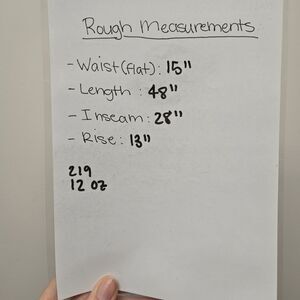 Rough Measurements
- Waist (flat): 15"
- Length : 48"
- Inseam: 28"
- Rise: 13"
219
12 oz